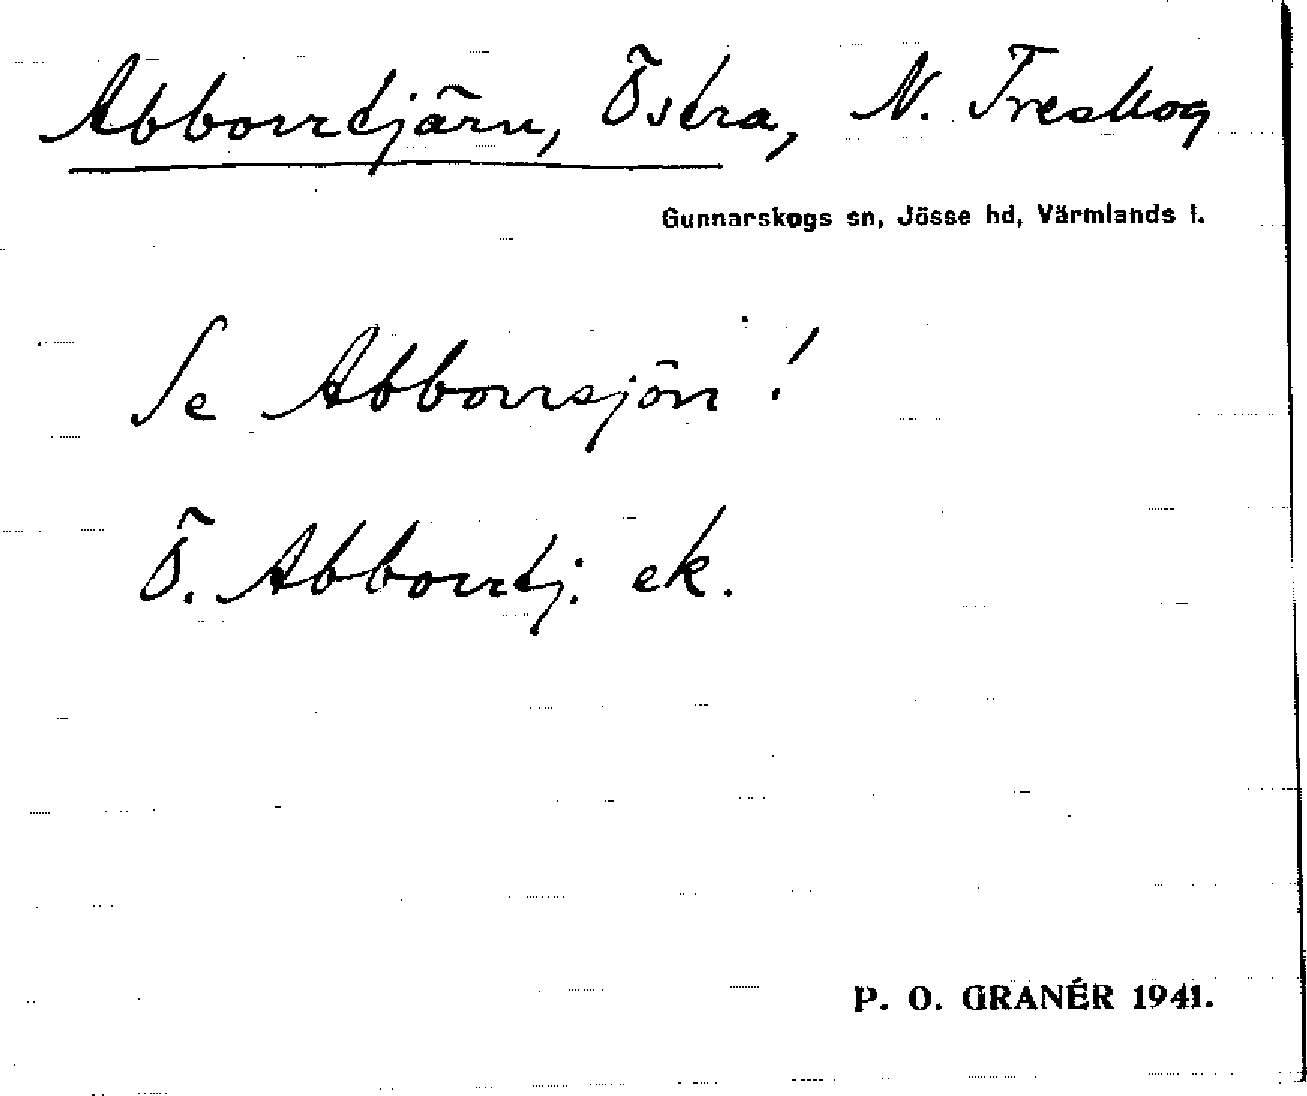 Abborrtjärn, Östra, N. Treskog
Gunnarskogs sn, Jösse hd, Värmlands l.
Se Abborrsjön!
Ö. Abborrtj. ek.
P. O. GRANÉR 1941.